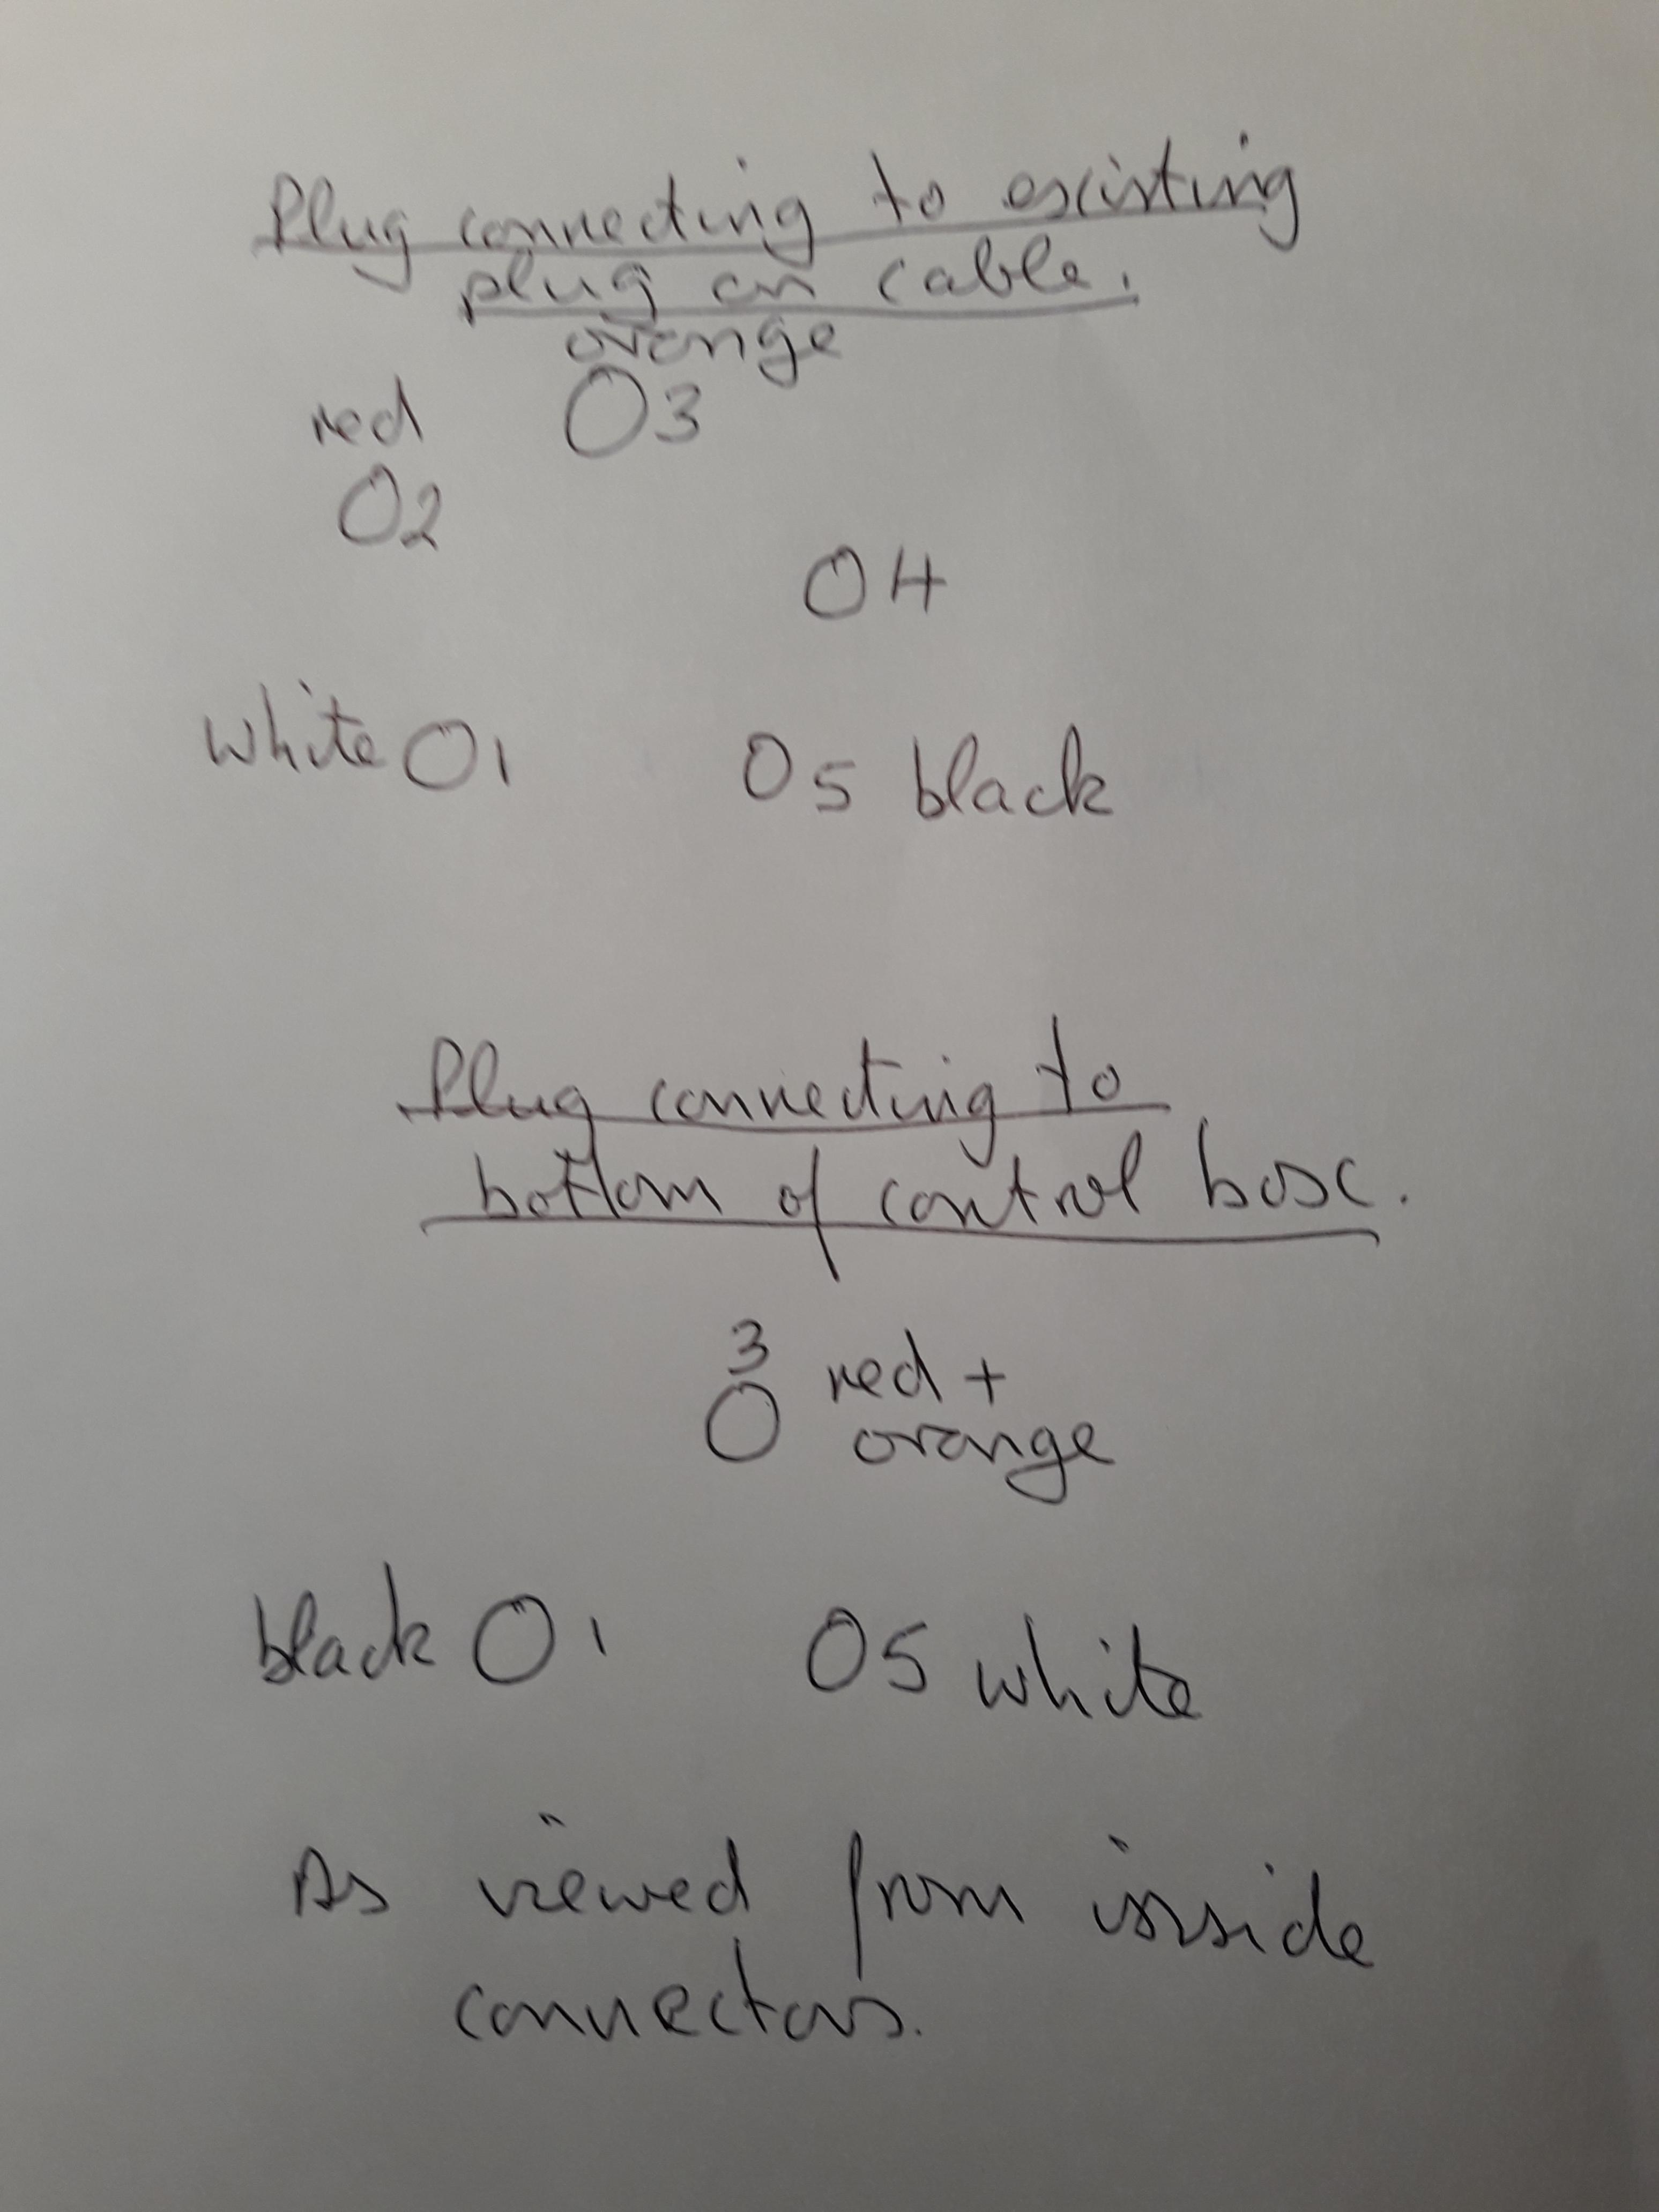 Plug connecting to existing
plug on cable.
orange
red O3
O2
O4
white O1 O5 black
Plug connecting to
bottom of control box.
3 red +
O orange
black O1 O5 white
As viewed from inside
connectors.